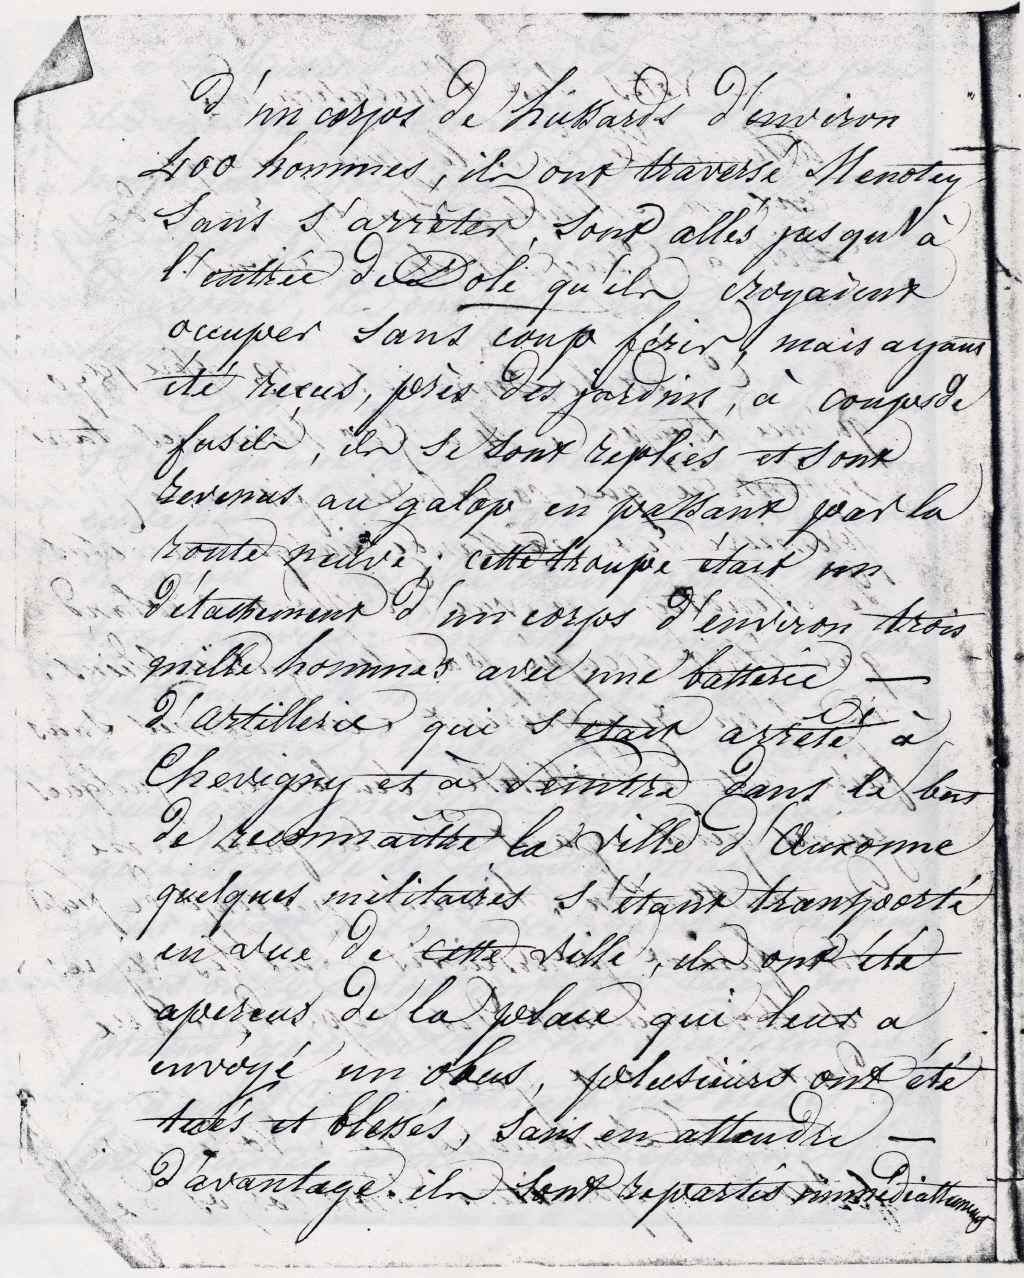 d'un corps de hussards d'environ
400 hommes, ils ont traversé Menotey
sans s'arrêter, sont allés jusqu'à
l'entrée de Dole qu'ils croyaient
occuper sans coup férir, mais ayans
été recus, près des jardins, à coups de
fusils, ils se sont repliés et sont
revenus au galop en passant par la
route neuve; cette troupe était un
détachement d'un corps d'environ trois
mille hommes avec une batterie —
d'artillerie qui s'était arrêté à
Chevigny et à Peintre dans le but
de reconnaître la ville d'Auxonne
quelques militaires s'étant transporté
en vue de cette ville, ils ont été
apercus de la place qui leur a
envoyé un obus, plusieurs ont été
tués et blessés, sans en attendre —
d'avantage ils sont repartis immédiattement